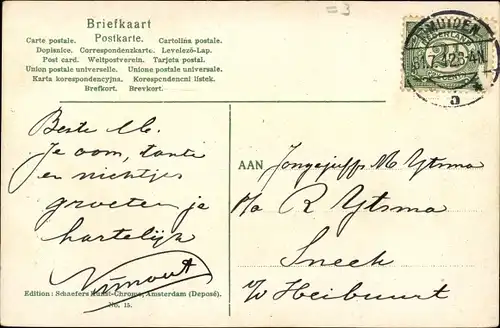 Briefkaart
Postkarte.
Carte postale. Cartolina postale.
Dopisnice. Correspondenzkarte. Levelező-Lap.
Post card. Weltpostverein. Tarjeta postal.
Union postale universelle. Unione postale universale.
Karta korespondencyjna. Korespcndencni listek.
Brefkort. Brevkort.
=3
Beste M.
Je oom, tante
en nichtjes
groeten je
hartelijk
AAN Jongejuffr M Ytsma
p/a R Ytsma
Sneek
Edition: Schaefers Kunst-Chromo, Amsterdam (Deposé).
No. 15.